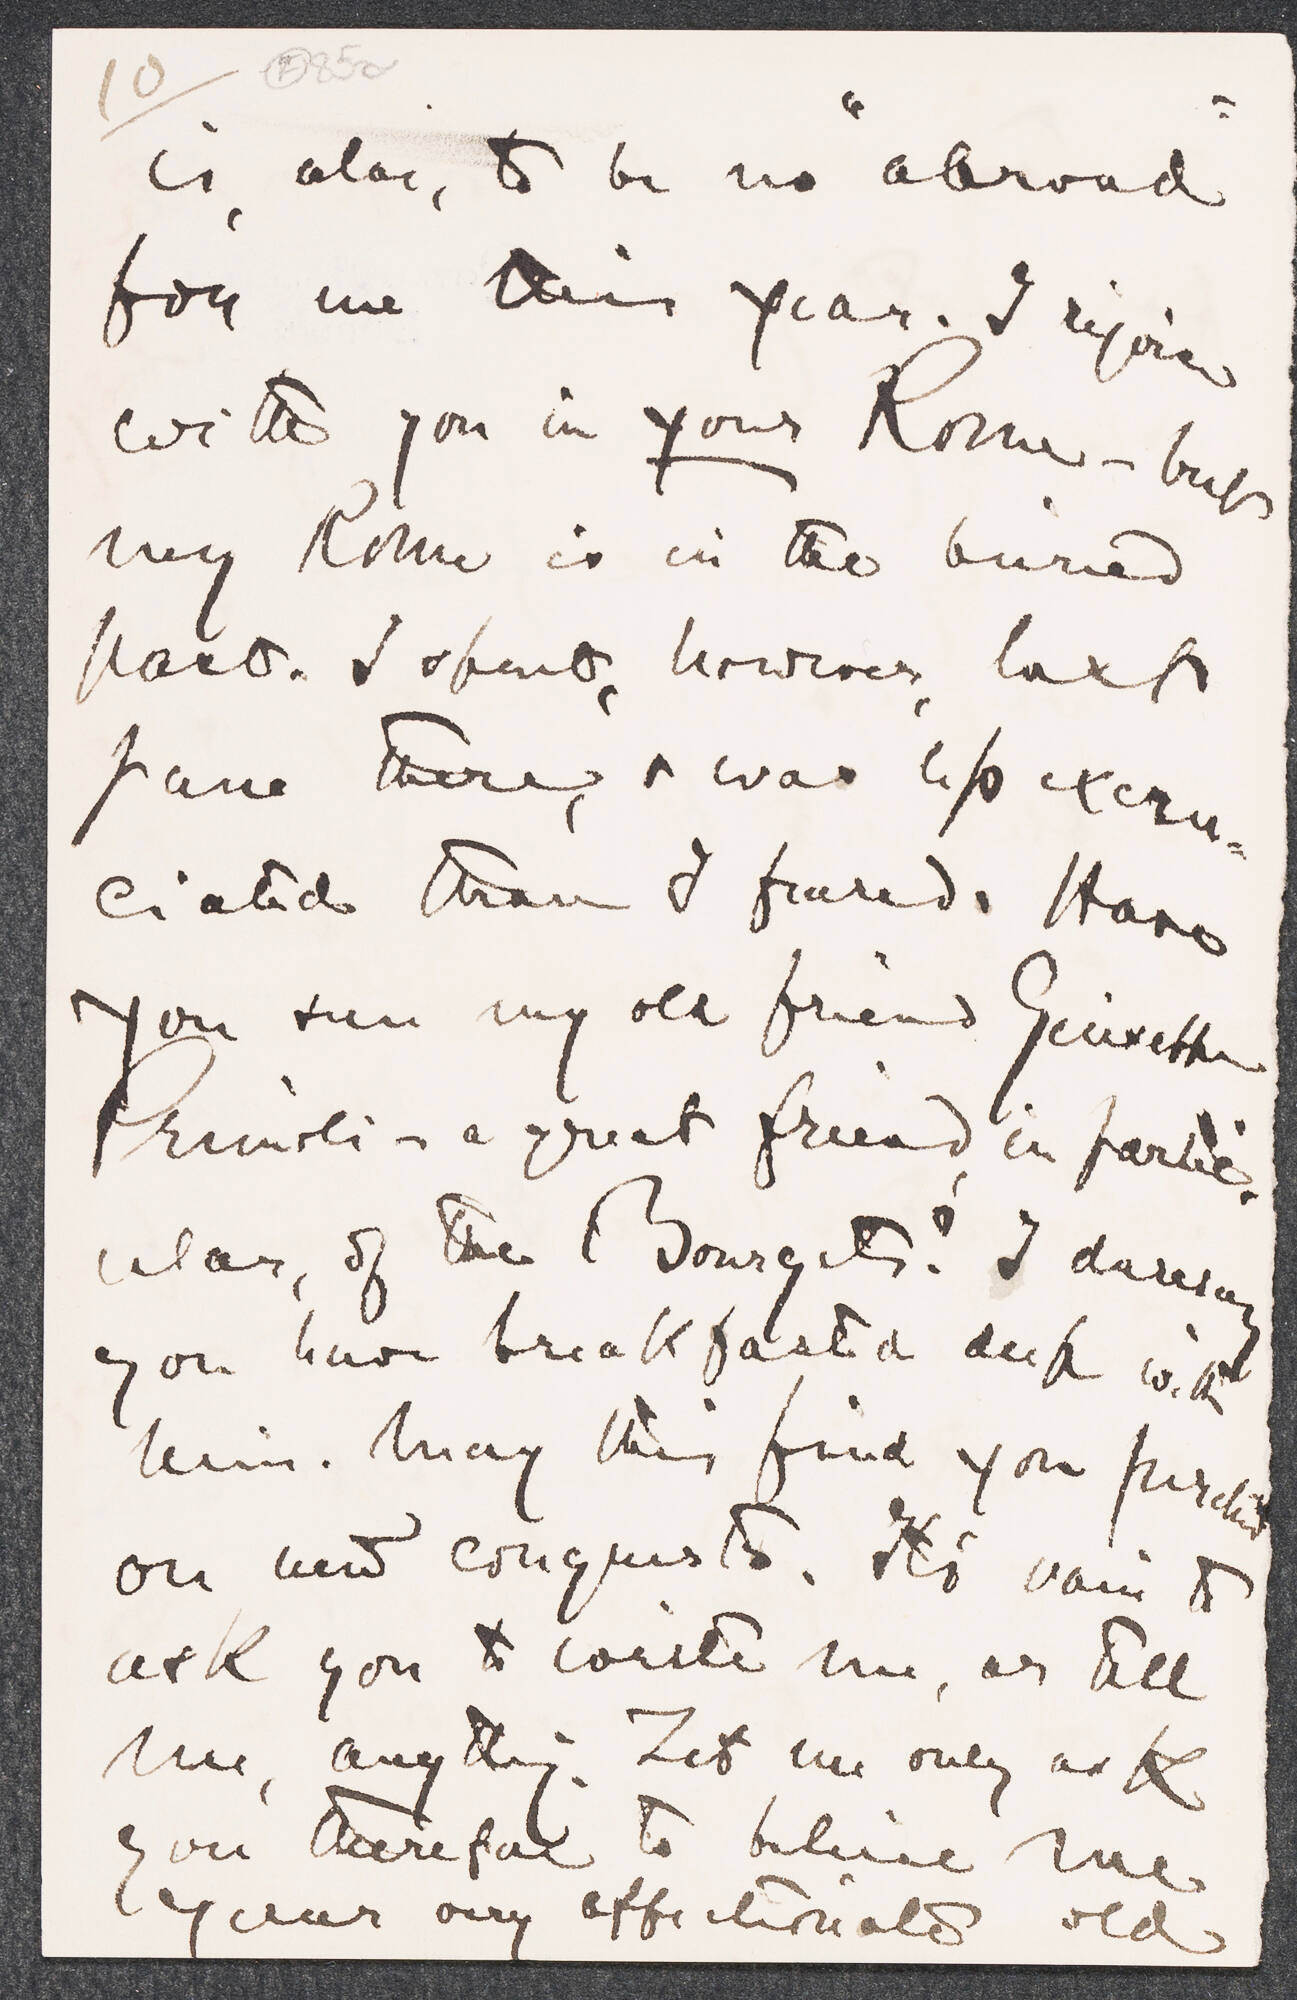 10
is, alas, to be no "abroad"
for me this year. I rejoice
with you in your Rome – but
my Rome is in the buried
past. I spent, however, last
June there, & was less excru-
ciated than I feared. Have
you seen my old friend Giuseppe
Primoli – a great friend, in partic-
ular, of the Bourgets? I daresay
you have breakfasted deep with
him. May this find you perched
on new conquests. It's vain to
ask you to write me, or tell
me, anything. Let me only ask
you therefore to believe me
your very affectionate old